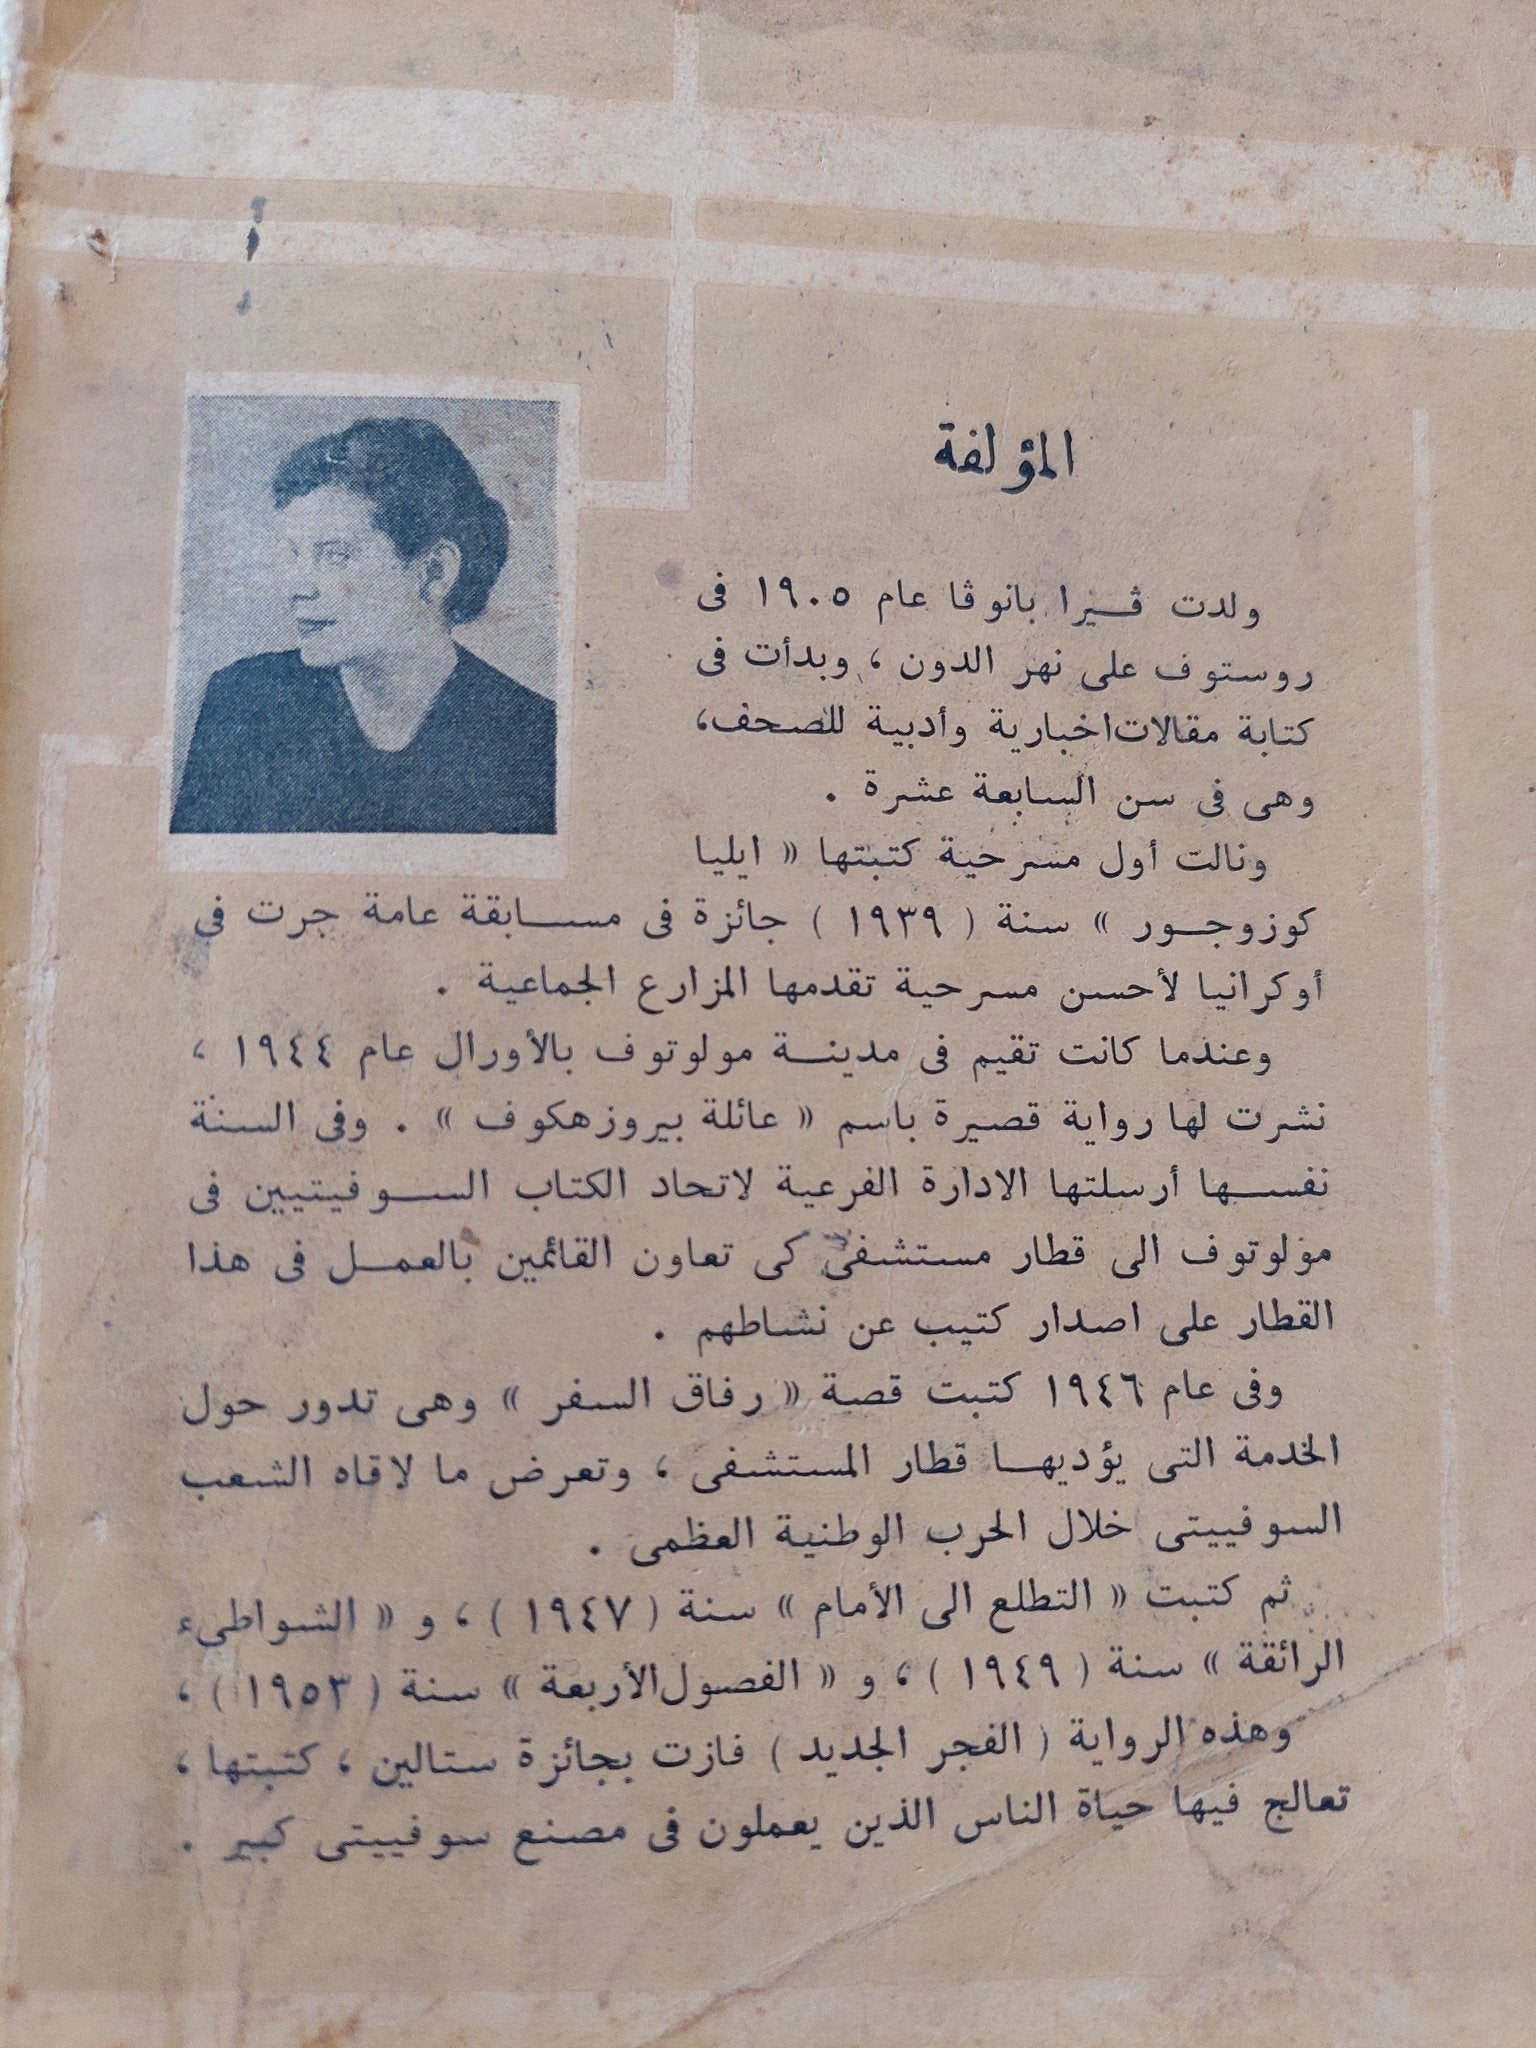 المؤلفة
ولدت ڤيرا بانوڤا عام ١٩٠٥ فى
روستوف على نهر الدون ، وبدأت فى
كتابة مقالات اخبارية وأدبية للصحف،
وهى فى سن السابعة عشرة .
ونالت أول مسرحية كتبتها « ايليا
كوزوجور » سنة ( ١٩٣٩ ) جائزة فى مسابقة عامة جرت فى
أوكرانيا لأحسن مسرحية تقدمها المزارع الجماعية .
وعندما كانت تقيم فى مدينة مولوتوف بالأورال عام ١٩٤٤ ،
نشرت لها رواية قصيرة باسم « عائلة بيروزهكوف » . وفى السنة
نفسها أرسلتها الادارة الفرعية لاتحاد الكتاب السوفيتيين فى
مولوتوف الى قطار مستشفى كى تعاون القائمين بالعمل فى هذا
القطار على اصدار كتيب عن نشاطهم .
وفى عام ١٩٤٦ كتبت قصة « رفاق السفر » وهى تدور حول
الخدمة التى يؤديها قطار المستشفى ، وتعرض ما لاقاه الشعب
السوفييتى خلال الحرب الوطنية العظمى .
ثم كتبت « التطلع الى الأمام » سنة ( ١٩٤٧ ) ، و « الشواطىء
الرائقة » سنة ( ١٩٤٩ ) ، و « الفصول الأربعة » سنة ( ١٩٥٣ ) ،
وهذه الرواية ( الفجر الجديد ) فازت بجائزة ستالين ، كتبتها ،
تعالج فيها حياة الناس الذين يعملون فى مصنع سوفييتى كبير .